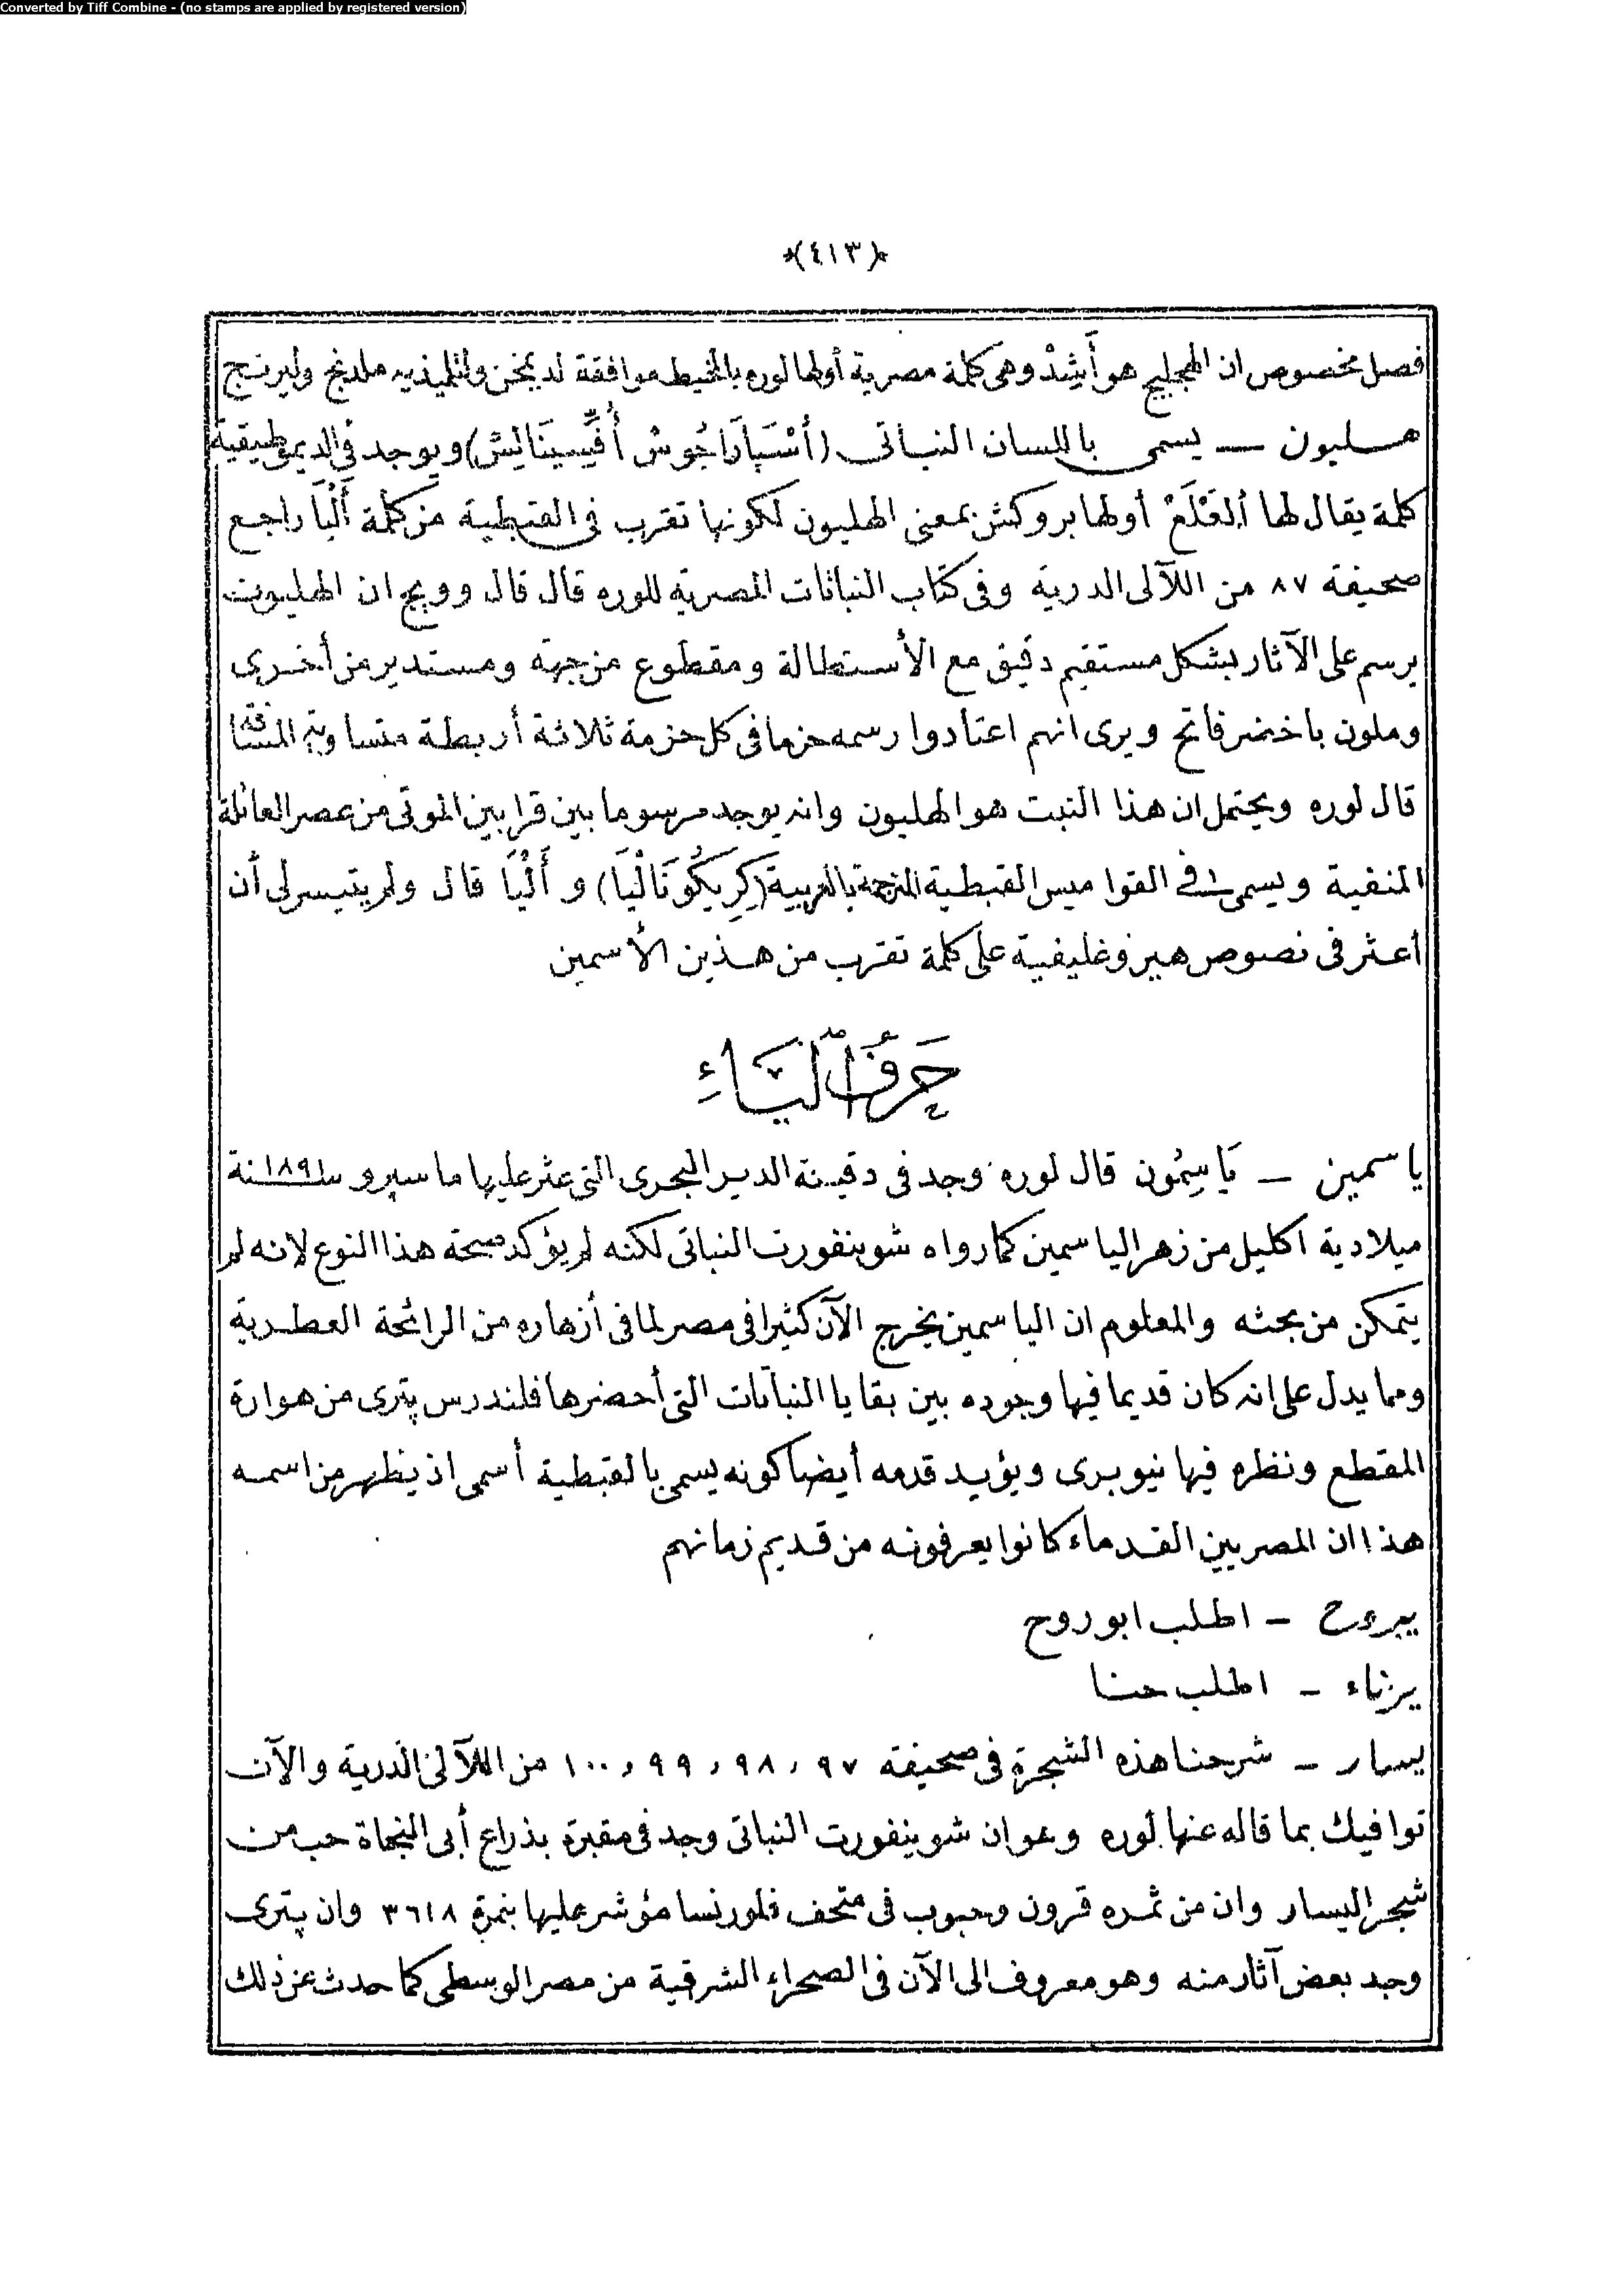 Converted by Tiff Combine - (no stamps are applied by registered version)
*(٤١٣)*
فصل مخصوص ان الهجليج هو أَشِدْ وهى كلمة مصرية أولها لوره بالمخيط موافقة لديمخن ولتلميذيه ملدنج وليرنج
هليون — يسمى باللسان النباتى (أَسْپَارَاجُوسْ أُفِّيسِينَالِيسْ) ويوجد فى الديموطيقية
كلمة يقال لها أَلعَنْلَمْ أولها بروكش بمعنى الهليون لكونها تقرب فى القبطية من كلمة أَلْيَا راجع
صحيفة ٨٧ من اللآلى الدرية وفى كتاب النباتات المصرية للوره قال قال وويج ان الهليون
يرسم على الآثار بشكل مستقيم دقيق مع الأستطالة ومقطوع من جهة ومستدير من أخرى
وملون باخضر فاتح ويرى انهم اعتادوا رسمه حزما فى كل حزمة ثلاثة أربطة متساوية المسافة
قال لوره ويحتمل ان هذا النبت هو الهليون وانه يوجد مرسوما بين قرابين الموتى من عصر العائلة
المنفية ويسمى فى القواميس القبطية المترجمة بالعربية (كِرِيكُونَالْيَا) و أَلْيَا قال ولم يتيسر لى أن
أعثر فى نصوص هيروغليفية على كلمة تقرب من هذين الأسمين
حَرفُ اليَاءِ
ياسمين — يَاسِمُون قال لوره وجد فى دفينة الدير البحرى التى عثر عليها ماسپرو سنة ١٨٩١
ميلادية اكليل من زهر الياسمين كما رواه شوينفورت النباتى لكنه لم يؤكد صحة هذا النوع لانه لم
يتمكن من بحثه والمعلوم ان الياسمين يخرج الآن كثيرا فى مصر لما فى أزهاره من الرائحة العطرية
ومما يدل على انه كان قديما فيها وجوده بين بقايا النباتات التى أحضرها فلندرس پترى من هوارة
المقطع ونظره فيها نيوبرى ويؤيد قدمه أيضا كونه يسمى بالقبطية أسمى اذ يظهر من اسمه
هذا ان المصريين القدماء كانوا يعرفونه من قديم زمانهم
يبروح — اطلب ابوروح
يرناء — اطلب حنا
يسار — شرحنا هذه الشجرة فى صحيفة ٩٧ ، ٩٨ ، ٩٩ ، ١٠٠ من اللآلئ الدرية والآن
نوافيك بما قاله عنها لوره وهو ان شوينفورت النباتى وجد فى مقبرة بذراع أبى النجاة حب من
شجر اليسار وان من ثمره قرون وحبوب فى متحف فلورنسا مؤشر عليها بنمرة ٣٦١٨ وان پترى
وجد بعض آثار منه وهو معروف الى الآن فى الصحراء الشرقية من مصر الوسطى كما حدث عن ذلك